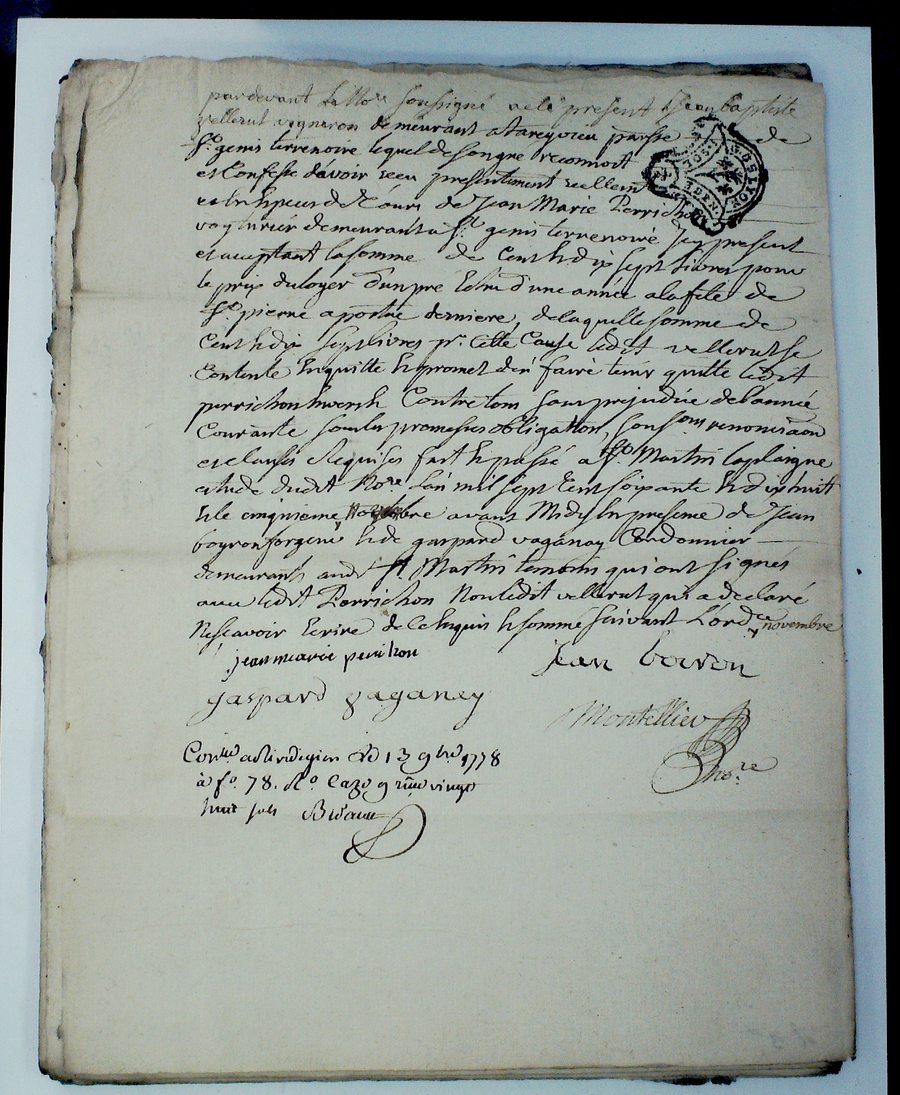 pardevant le No.re soussigné a été present Jean Baptiste
vellerut vigneron demeurant a tareyzieu parsse de
St. genis terrenoire lequel de son gré reconnoit
et Confesse d'avoir receu presentement reellement
et En Especes de Cours de Jean Marie Perrichon
voyturier demeurant a St. genis terrenoire icy present
et acceptant la somme de Cent dix sept Livres pour
le prix du loyer d'un pre Echu d'une année a la fete de
St. pierre apostre derniere, de laquelle somme de
Cent dix sept livres pr. cette Cause ledit vellerut se
Contente En quitte Et promet d'en faire tenir quitte ledit
perrichon Envers Et Contre tous sans prejudice de l'année
Courante sous les promesses obligation, soumissions renonciation
et clauses Requises fait Et passé a St. Martin laplaigne
etude dudit No.re L'an mil sept Cent soixante Et dix huit
Et le cinquieme avant Midy En presence de Jean
boyron forgeur Et de gaspard vaganay Cordonnier
demeurants audt St. Martin temoins qui ont signés
avec ledit Perrichon Non ledit vellerut qui a declaré
Ne sçavoir Ecrire de Ce Enquis Et sommé suivant L'ord.ce
novembre
jean marie perichon
jean boiron
gaspard vaganey
Montellier
no.re
Con.lé a Rivedegier le 13 9bre 1778
à f.o 78. R.o Caze 9 reçu vingt
huit sols